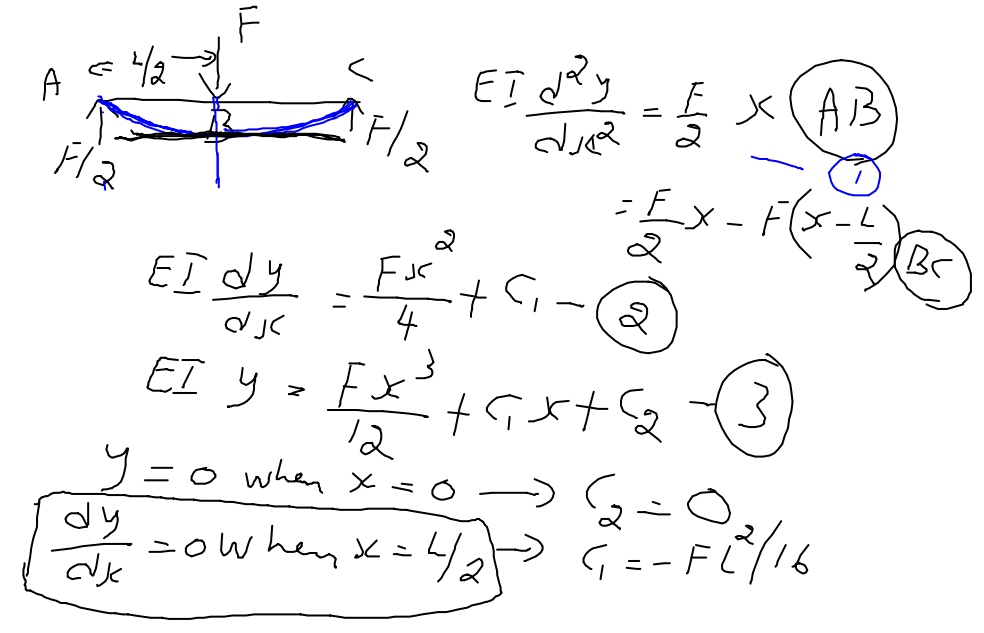 F
A ⇐ L/2 → C
B
F/2 F/2
EI d²y/dx² = F/2 x AB
— 1
= F/2 x - F(x - L/2) BC
EI dy/dx = Fx²/4 + C₁ - 2
EI y = Fx³/12 + C₁x + C₂ - 3
y = 0 when x = 0 → C₂ = 0
dy/dx = 0 when x = L/2 → C₁ = - FL²/16